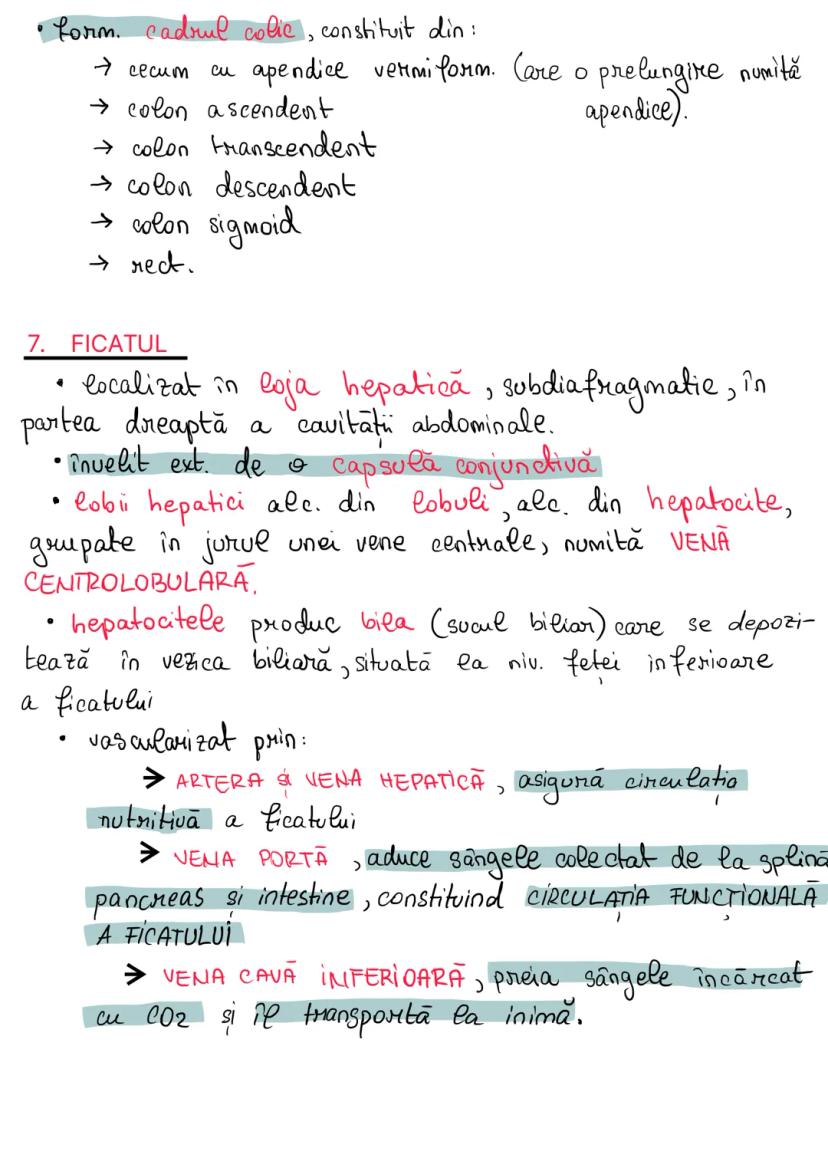 • form. cadrul colic, constituit din:
→ cecum cu apendice vermiform. (are o prelungire numită
apendice).
→ colon ascendent
→ colon transcendent
→ colon descendent
→ colon sigmoid
→ rect.
7. FICATUL
• localizat în loja hepatică, subdiafragmatic, în
partea dreaptă a cavității abdominale.
• învelit ext. de o capsulă conjunctivă
• lobii hepatici alc. din lobuli, alc. din hepatocite,
grupate în jurul unei vene centrale, numită VENĂ
CENTROLOBULARĂ.
• hepatocitele produc bila (sucul biliar) care se depozi-
tează în vezica biliară, situată la niv. feței inferioare
a ficatului
• vascularizat prin:
→ ARTERA și VENA HEPATICĂ, asigură circulația
nutritivă a ficatului
→ VENA PORTĂ, aduce sângele colectat de la splină
pancreas și intestine, constituind CIRCULAȚIA FUNCȚIONALĂ
A FICATULUI
→ VENA CAVĂ INFERIOARĂ, preia sângele încărcat
cu CO2 și îl transportă la inimă.